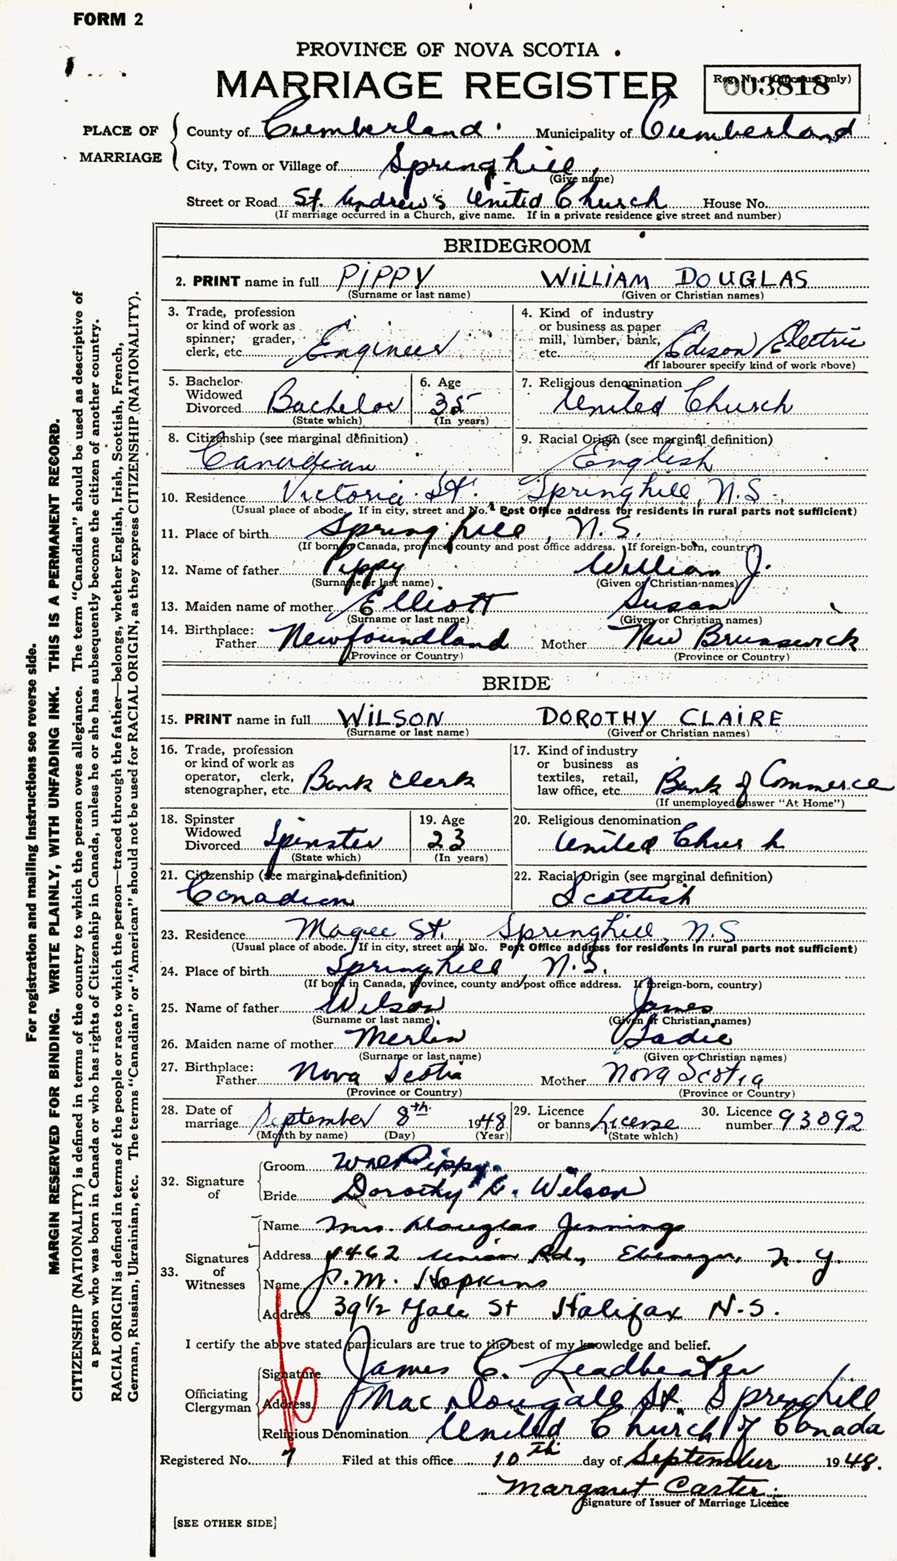 FORM 2
PROVINCE OF NOVA SCOTIA
MARRIAGE REGISTER
Reg. No. (Office use only)
003818
PLACE OF MARRIAGE
County of Cumberland Municipality of Cumberland
City, Town or Village of Springhill
(Give name)
Street or Road St. Andrew's United Church House No.
(If marriage occurred in a Church, give name. If in a private residence give street and number)
BRIDEGROOM
2. PRINT name in full PIPPY WILLIAM DOUGLAS
(Surname or last name) (Given or Christian names)
3. Trade, profession or kind of work as spinner; grader, clerk, etc. Engineer
4. Kind of industry or business as paper mill, lumber, bank, etc. Edison Electric
(If labourer specify kind of work above)
5. Bachelor Widowed Divorced Bachelor
(State which)
6. Age 35
(In years)
7. Religious denomination United Church
8. Citizenship (see marginal definition) Canadian
9. Racial Origin (see marginal definition) English
10. Residence Victoria St. Springhill, N.S.
(Usual place of abode. If in city, street and No. Post Office address for residents in rural parts not sufficient)
11. Place of birth Springhill, N.S.
(If born in Canada, province, county and post office address. If foreign-born, country)
12. Name of father Pippy William J.
(Surname or last name) (Given or Christian names)
13. Maiden name of mother Elliott Susan
(Surname or last name) (Given or Christian names)
14. Birthplace: Father Newfoundland Mother New Brunswick
(Province or Country) (Province or Country)
BRIDE
15. PRINT name in full WILSON DOROTHY CLAIRE
(Surname or last name) (Given or Christian names)
16. Trade, profession or kind of work as operator, clerk, stenographer, etc. Bank clerk
17. Kind of industry or business as textiles, retail, law office, etc. Bank of Commerce
(If unemployed answer "At Home")
18. Spinster Widowed Divorced Spinster
(State which)
19. Age 23
(In years)
20. Religious denomination United Church
21. Citizenship (see marginal definition) Canadian
22. Racial Origin (see marginal definition) Scottish
23. Residence Magee St. Springhill, N.S
(Usual place of abode. If in city, street and No. Post Office address for residents in rural parts not sufficient)
24. Place of birth Springhill, N.S.
(If born in Canada, province, county and post office address. If foreign-born, country)
25. Name of father Wilson James
(Surname or last name) (Given or Christian names)
26. Maiden name of mother Merlin Sadie
(Surname or last name) (Given or Christian names)
27. Birthplace: Father Nova Scotia Mother Nova Scotia
(Province or Country) (Province or Country)
28. Date of marriage September 8th 1948
(Month by name) (Day) (Year)
29. Licence or banns License
(State which)
30. Licence number 93092
32. Signature of
Groom Wm D Pippy
Bride Dorothy C. Wilson
33. Signatures of Witnesses
Name Mrs. Douglas Jennings
Address 1462 Union Rd., Ebenezer, N.Y.
Name J.M. Hopkins
Address 39½ Yale St Halifax N.S.
I certify the above stated particulars are true to the best of my knowledge and belief.
Officiating Clergyman
Signature James C. Leadbeater
Address MacDougall St. Springhill
Religious Denomination United Church of Canada
Registered No. 7 Filed at this office 10th day of September 1948.
Margaret Carter
Signature of Issuer of Marriage Licence
[SEE OTHER SIDE]
For registration and mailing instructions see reverse side.
MARGIN RESERVED FOR BINDING. WRITE PLAINLY, WITH UNFADING INK. THIS IS A PERMANENT RECORD.
CITIZENSHIP (NATIONALITY) is defined in terms of the country to which the person owes allegiance. The term "Canadian" should be used as descriptive of
a person who was born in Canada or who has rights of Citizenship in Canada, unless he or she has subsequently become the citizen of another country.
RACIAL ORIGIN is defined in terms of the people or race to which the person—traced through the father—belongs, whether English, Irish, Scottish, French,
German, Russian, Ukrainian, etc. The terms "Canadian" or "American" should not be used for RACIAL ORIGIN, as they express CITIZENSHIP (NATIONALITY).